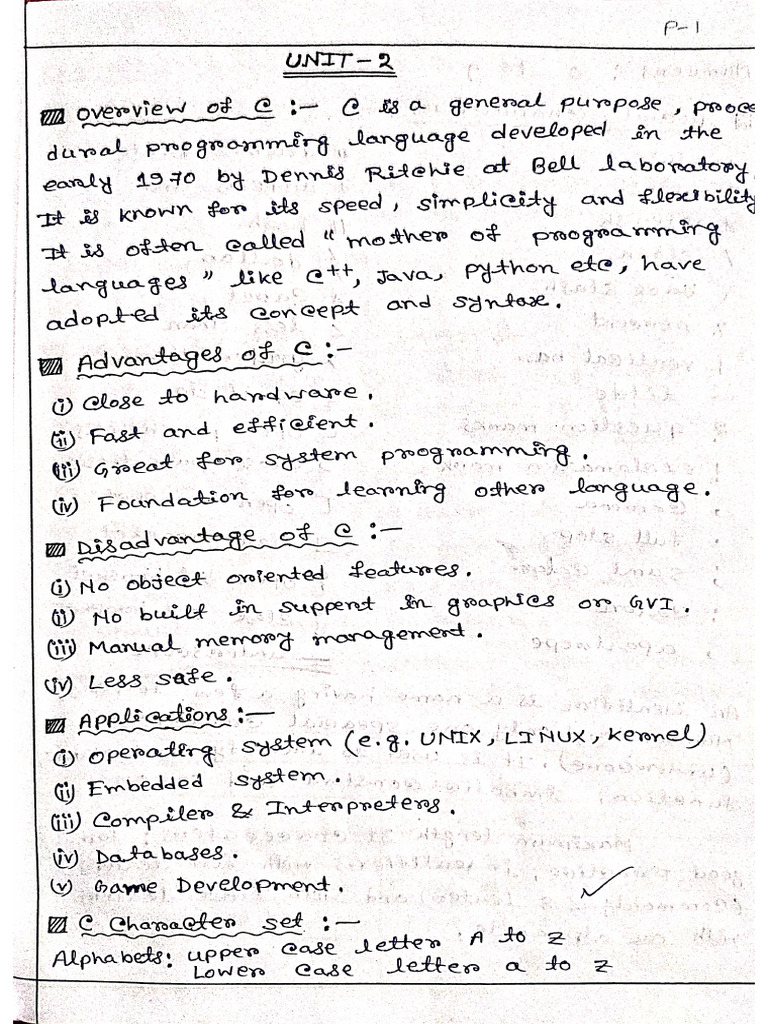 P-1
UNIT-2
Overview of C :- C is a general purpose, proce
dural programming language developed in the
early 1970 by Dennis Ritchie at Bell laboratory
It is known for its speed, simplicity and flexibility
It is often called "mother of programming
languages" like C++, Java, python etc, have
adopted its concept and syntax.
Advantages of C :-
(i) Close to hardware.
(ii) Fast and efficient.
(iii) Great for system programming.
(iv) Foundation for learning other language.
Disadvantage of C :-
(i) No object oriented features.
(ii) No built in support in graphics or GVI.
(iii) Manual memory management.
(iv) Less safe.
Applications :-
(i) Operating system (e.g. UNIX, LINUX, kernel)
(ii) Embedded system.
(iii) Compiler & Interpreters.
(iv) Databases.
(v) Game Development.
C Character set :-
Alphabets: upper case letter A to Z
Lower case letter a to z